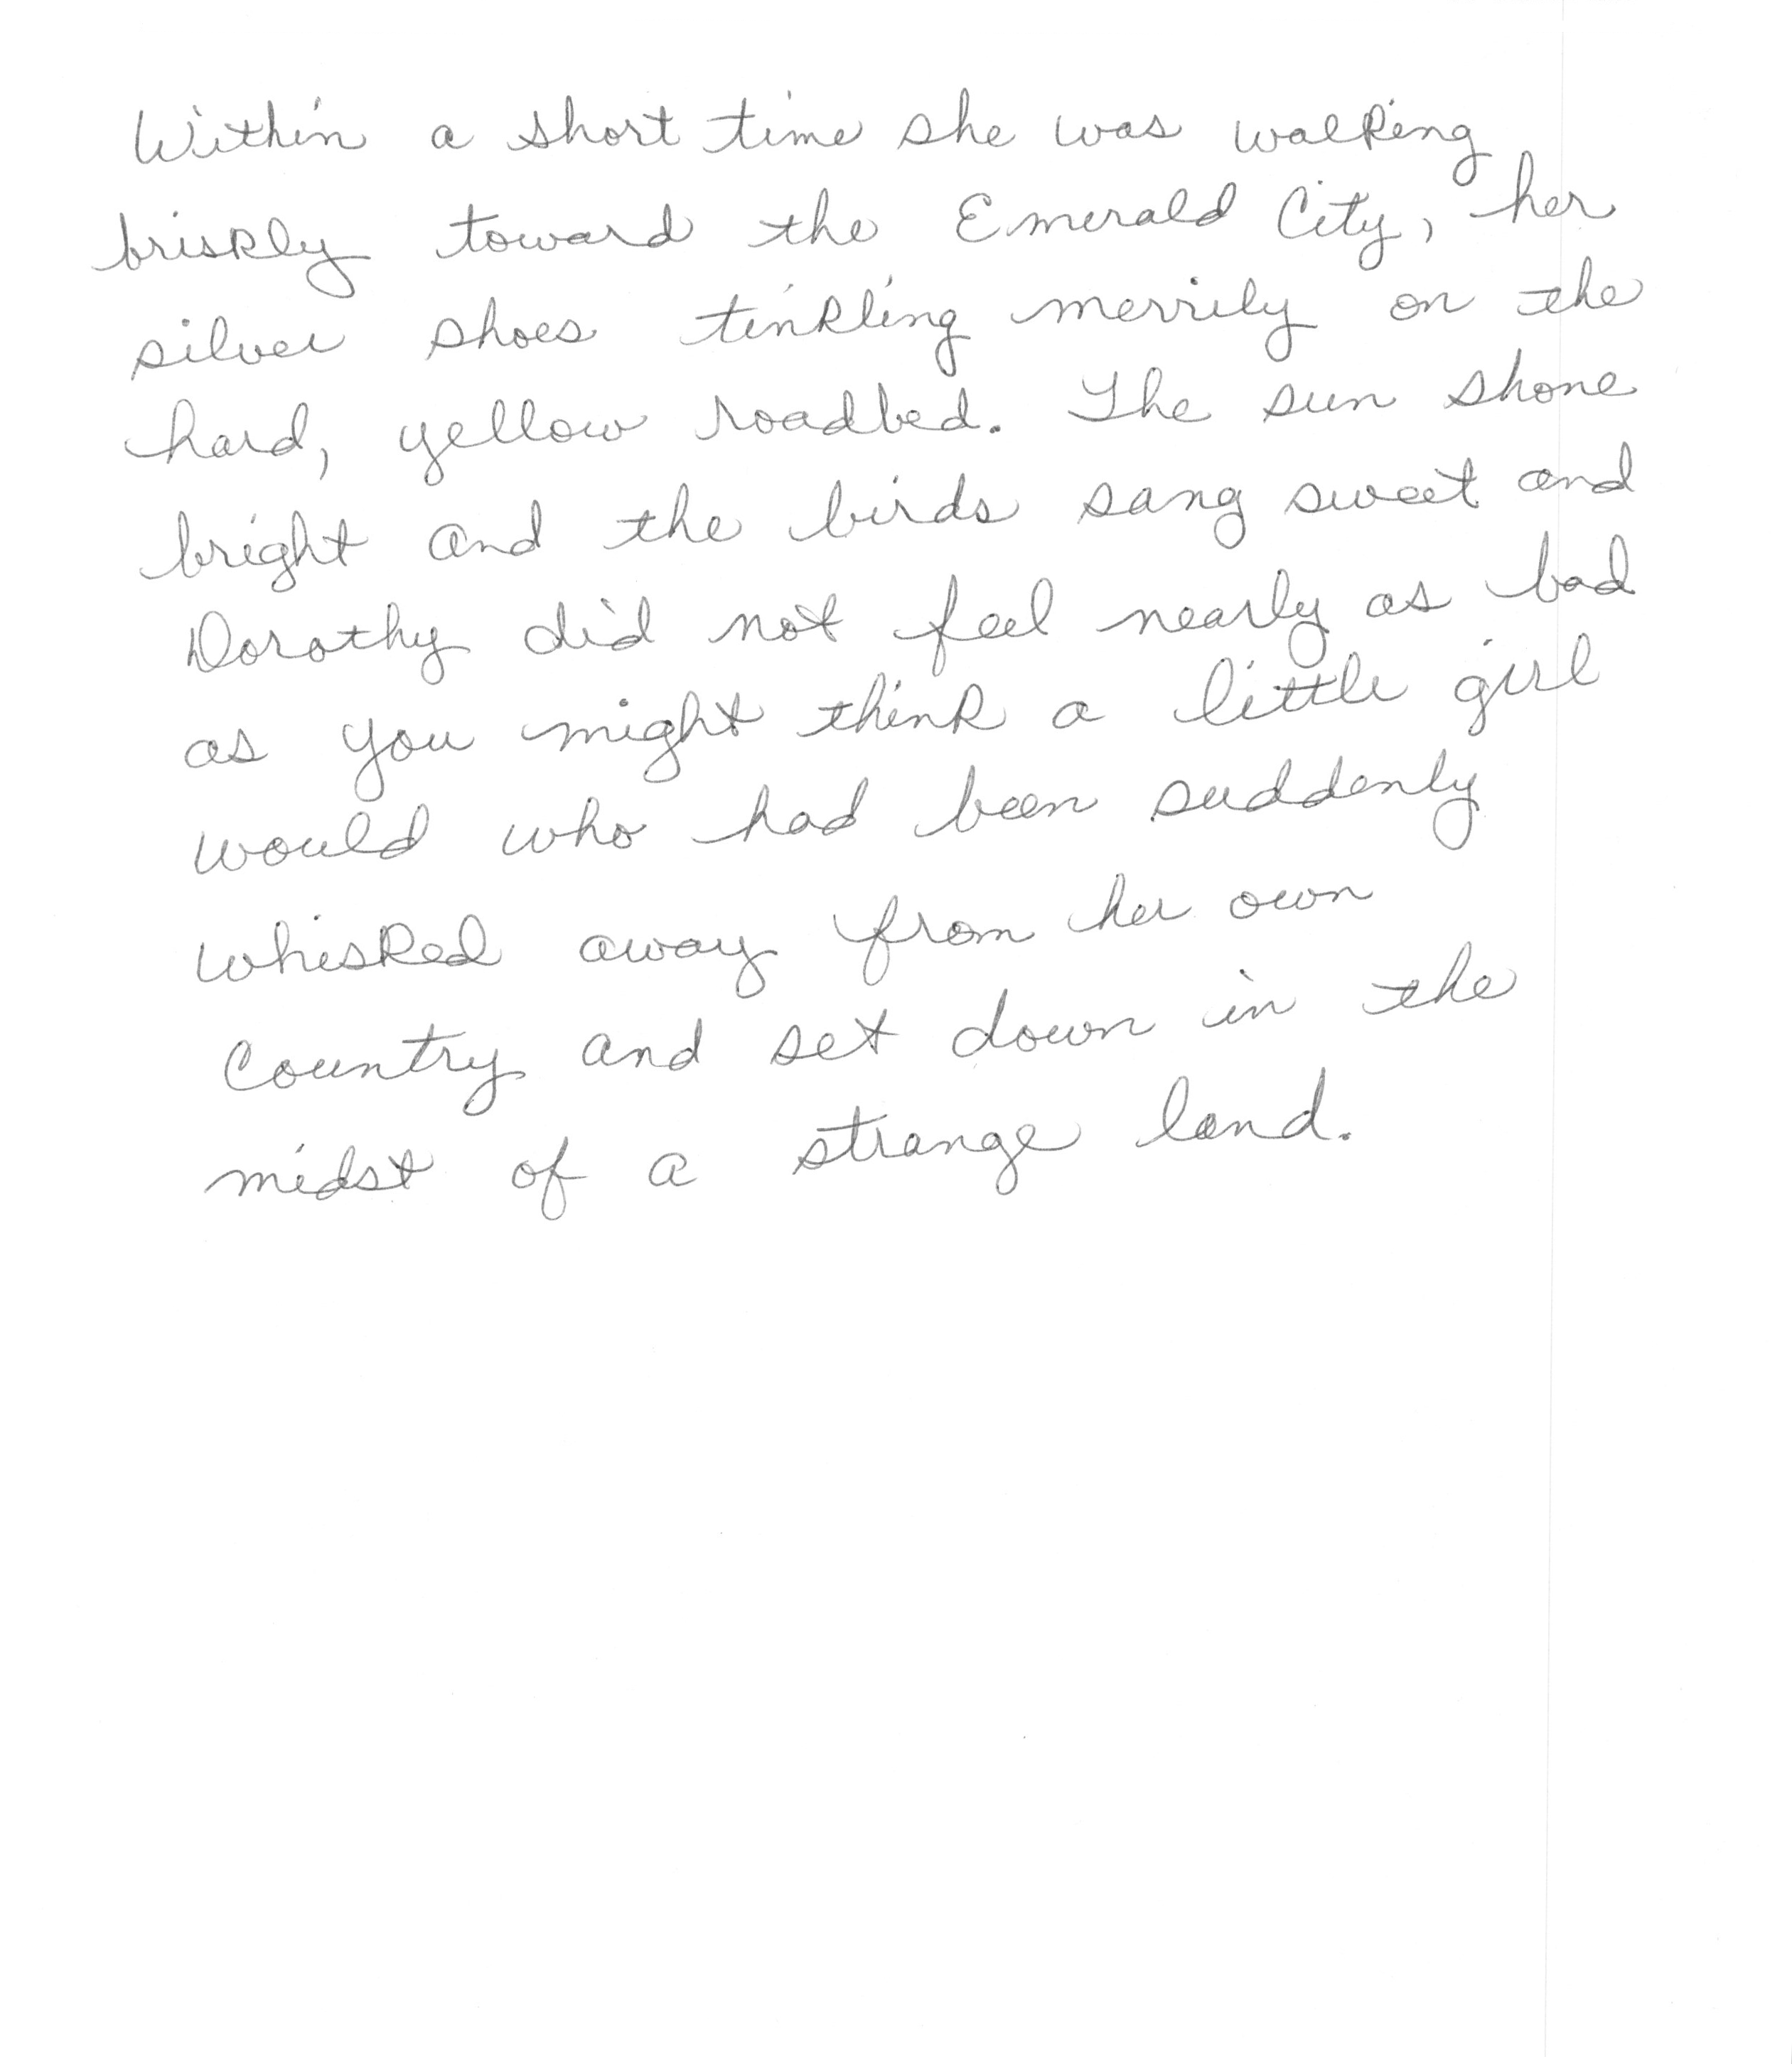 Within a short time she was walking
briskly toward the Emerald City, her
silver shoes tinkling merrily on the
hard, yellow roadbed. The sun shone
bright and the birds sang sweet and
Dorothy did not feel nearly as bad
as you might think a little girl
would who had been suddenly
whisked away from her own
country and set down in the
midst of a strange land.